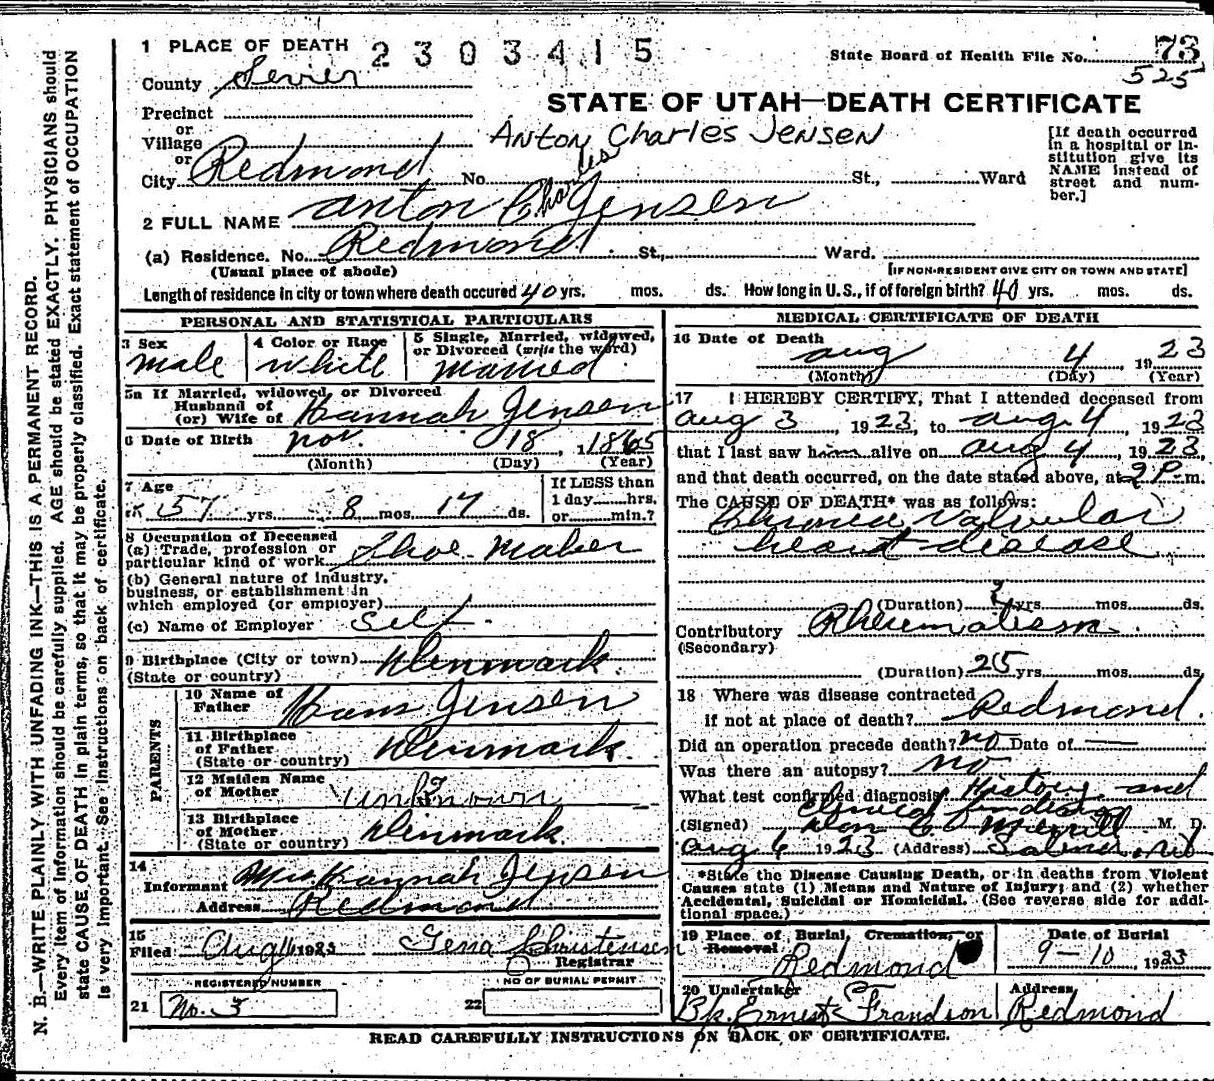 N. B.—WRITE PLAINLY WITH UNFADING INK—THIS IS A PERMANENT RECORD.
Every item of Information should be carefully supplied. AGE should be stated EXACTLY. PHYSICIANS should
state CAUSE OF DEATH in plain terms, so that it may be properly classified. Exact statement of OCCUPATION
is very important. See instructions on back of certificate.
1 PLACE OF DEATH 2303415
State Board of Health File No. 73
525
County Sevier
STATE OF UTAH—DEATH CERTIFICATE
Precinct
or
Village
Anton Charles Jensen
or
City Redmond No. St., Ward
[If death occurred
in a hospital or in-
stitution give its
NAME instead of
street and num-
ber.]
2 FULL NAME Anton Charles Jensen
(a) Residence. No. Redmond St., Ward.
(Usual place of abode)
[IF NON-RESIDENT GIVE CITY OR TOWN AND STATE]
Length of residence in city or town where death occured 40 yrs. mos. ds. How long in U.S., if of foreign birth? 40 yrs. mos. ds.
PERSONAL AND STATISTICAL PARTICULARS
3 Sex
male
4 Color or Race
White
5 Single, Married, widowed,
or Divorced (write the word)
Married
5a If Married, widowed, or Divorced
Husband of
(or) Wife of Hannah Jensen
6 Date of Birth Nov. 18, 1865
(Month) (Day) (Year)
7 Age
57 yrs. 8 mos. 17 ds.
If LESS than
1 day hrs.
or min.?
8 Occupation of Deceased
(a) Trade, profession or
particular kind of work Shoe Maker
(b) General nature of industry,
business, or establishment in
which employed (or employer)
(c) Name of Employer Self
9 Birthplace (City or town) Denmark
(State or country)
PARENTS
10 Name of
Father Hans Jensen
11 Birthplace
of Father Denmark
(State or country)
12 Maiden Name
of Mother Unknown
13 Birthplace
of Mother Denmark
(State or country)
14
Informant Mrs Hannah Jensen
Address Redmond
15
Filed Aug 1923 Tena Christensen
Registrar
REGISTERED NUMBER
21 No. 5
NO OF BURIAL PERMIT
22
MEDICAL CERTIFICATE OF DEATH
16 Date of Death
Aug 4, 1923
(Month) (Day) (Year)
17 I HEREBY CERTIFY, That I attended deceased from
Aug 3, 1923, to Aug. 4, 1923
that I last saw him alive on Aug 4, 1923,
and that death occurred, on the date stated above, at 2 P. m.
The CAUSE OF DEATH* was as follows:
Chronic Valvular
heart disease
(Duration) yrs. mos. ds.
Contributory Rheumatism
(Secondary)
(Duration) 25 yrs. mos. ds.
18 Where was disease contracted
if not at place of death? Redmond.
Did an operation precede death? no Date of —
Was there an autopsy? no
What test confirmed diagnosis? History and
Clinical findings
(Signed) Don C Merrill M. D.
Aug 6 1923 (Address) Salina
*State the Disease Causing Death, or in deaths from Violent
Causes state (1) Means and Nature of Injury; and (2) whether
Accidental, Suicidal or Homicidal. (See reverse side for addi-
tional space.)
19 Place of Burial, Cremation, or
Removal
Redmond
Date of Burial
9-10, 1923
20 Undertaker
Bk. Ernest Frandson
Address
Redmond
READ CAREFULLY INSTRUCTIONS ON BACK OF CERTIFICATE.